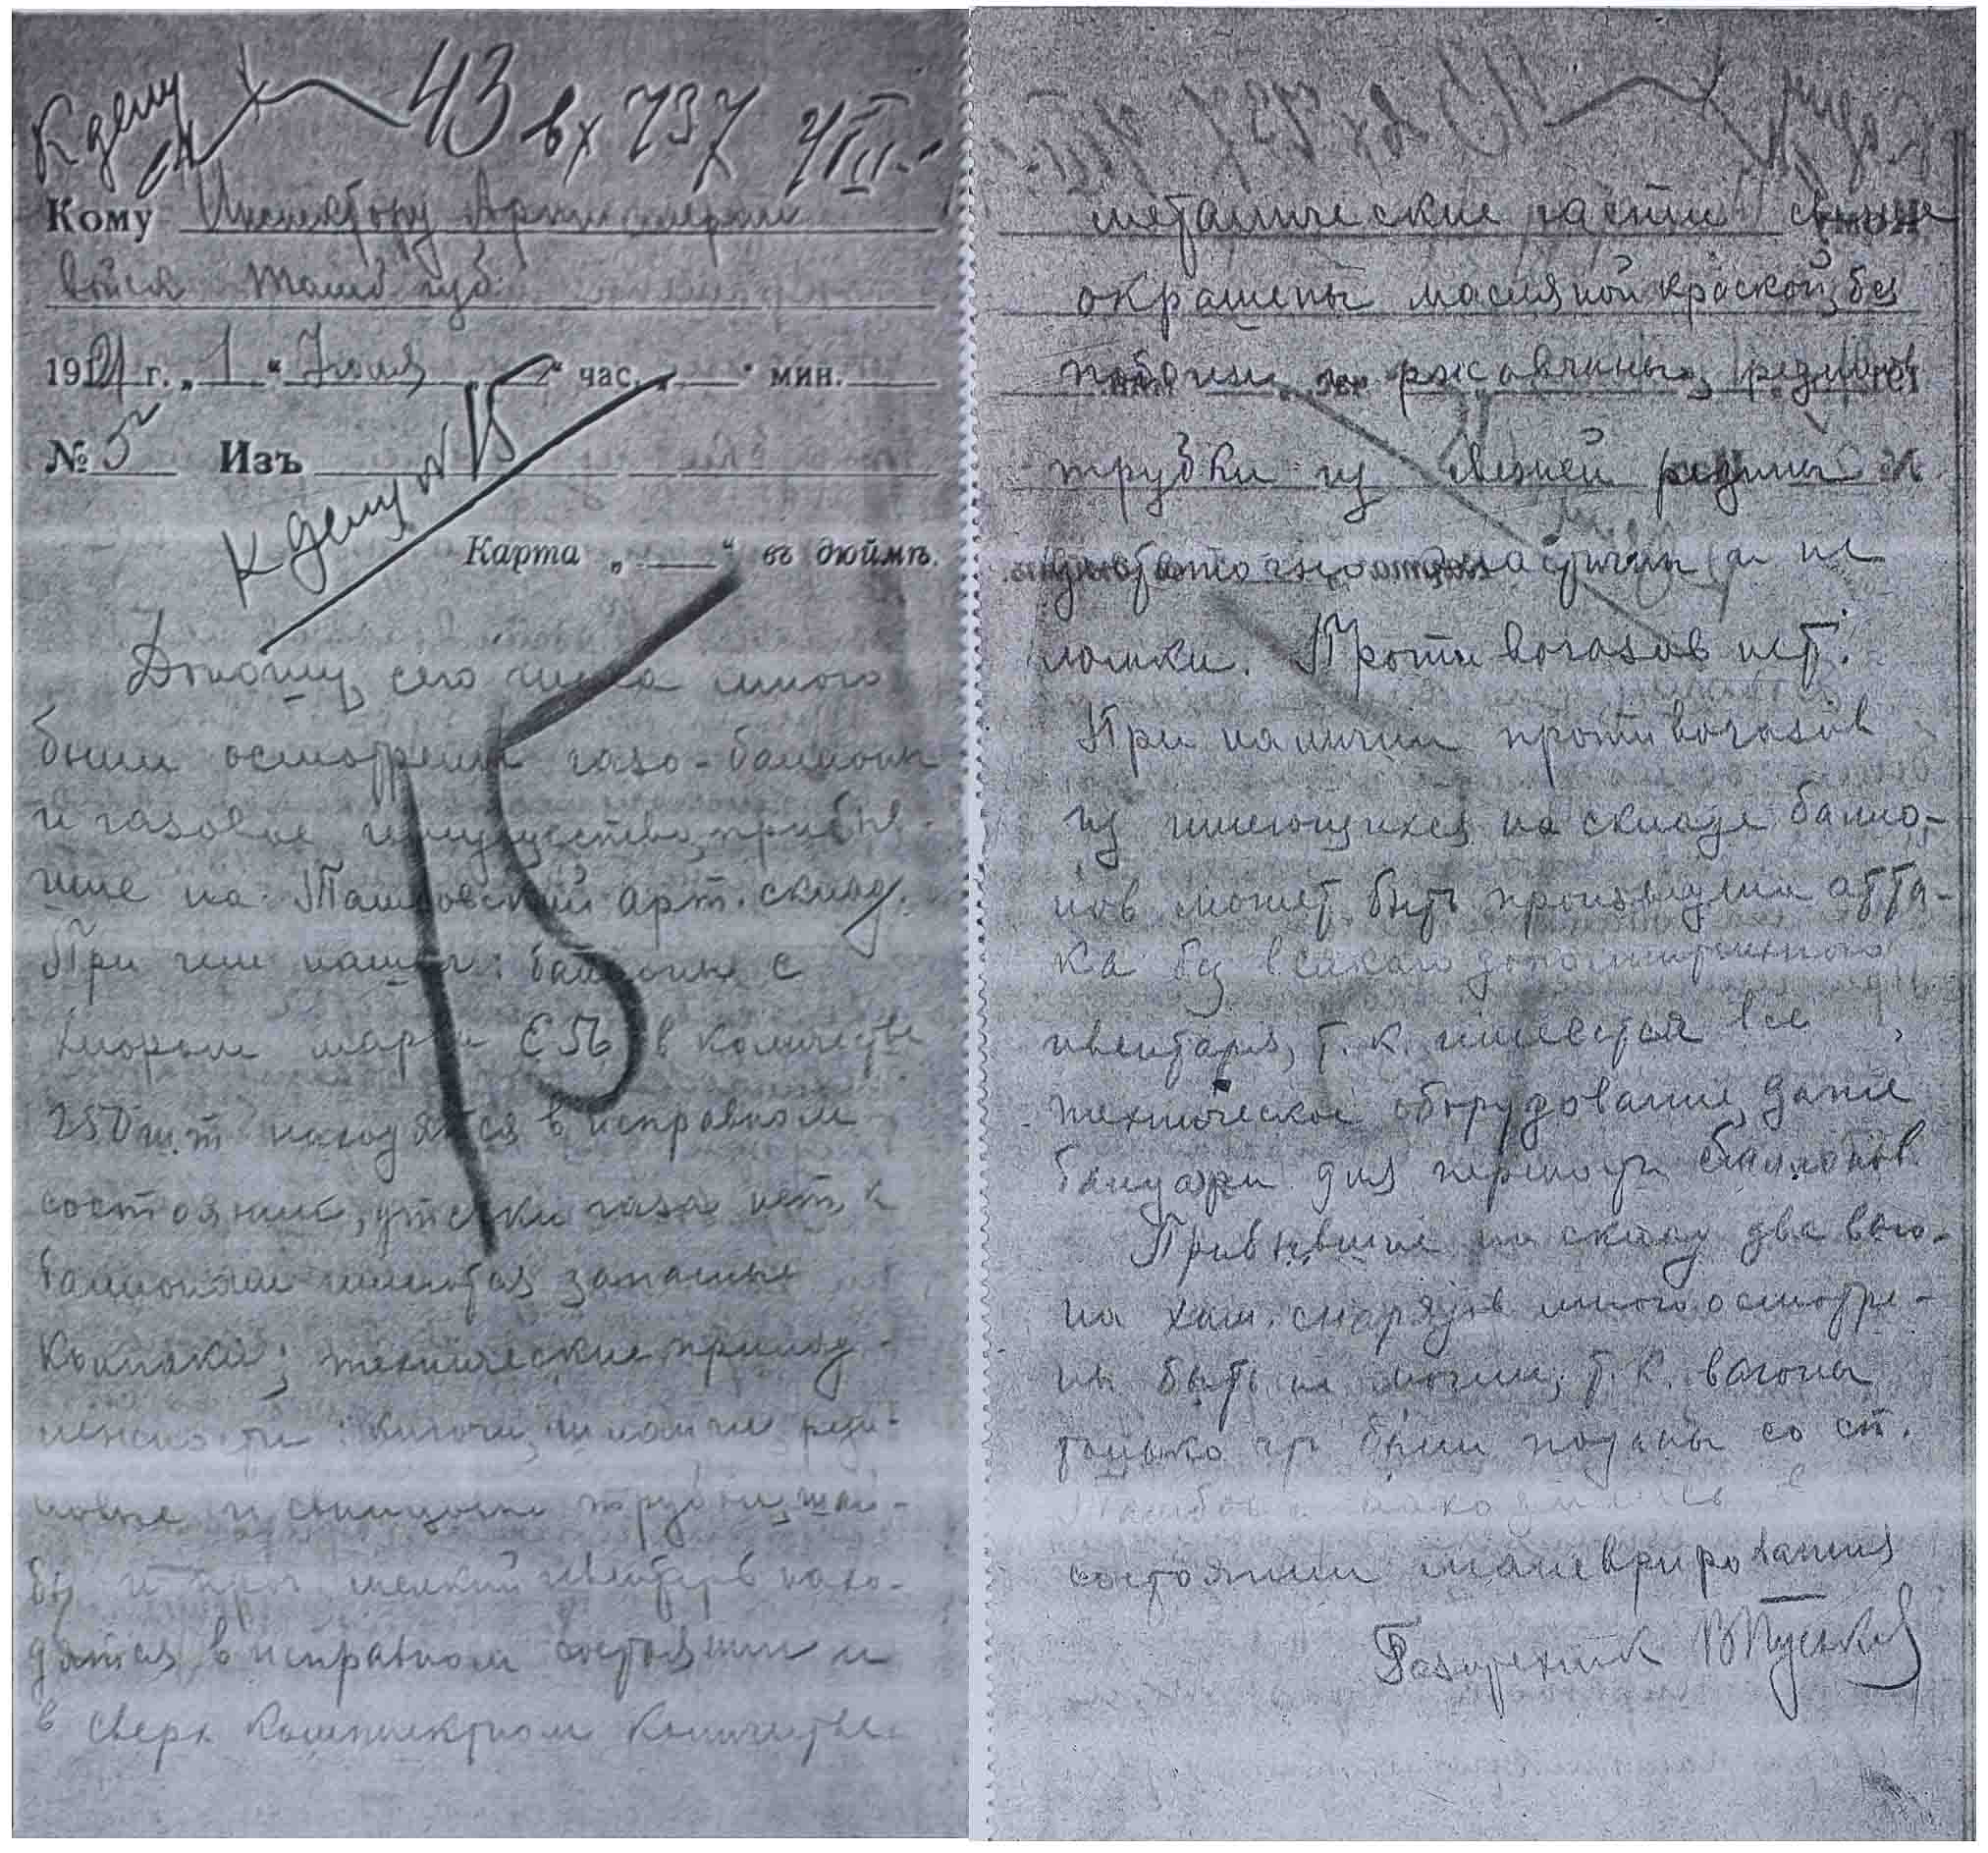 К делу 43 вх 737 4/VII
Кому Инспектору Артиллерии
войск Тамб губ.
1921 г. „ 1 “ Июля “ час. „ “ мин.
№ 52 Изъ
К делу № 15
Карта „ “ въ дюймѣ.
15
Доношу, сего числа мною
были осмотрены газо-баллоны
и газовое имущество, прибыв-
шие на Тамбовский арт. склад.
При чем нашел: баллоны с
хлором марки Е 56 в количестве
250 шт находятся в исправном
состоянии, утечки газа нет, к
баллонам имеются запасные
колпаки; технические принад-
лежности: ключи, шланги, рези-
новые и свинцовые трубки, шай-
бы и проч мелкий инвентарь нахо-
дятся в исправном состоянии и
в сверх комплектном количестве
металлические части
окрашены масляной краской, без
и ржавчины, резинов
трубки из свежей резины и
достаточно эластичны и не
ломки. Противогазов нет.
При наличии противогазов
из имеющихся на складе балло-
нов может быть произведена атта-
ка без всякаго дополнительного
инвентаря, т. к. имеется все
техническое оборудование, даже
для переноски баллонов.
Прибывшие на склад два ваго-
на хим. снарядов мною осмотре-
ны быть не могли, т. к. вагоны
только что были поданы со ст.
Тамбов и находились в
состоянии маневрирования
Газотехник В Пуськов